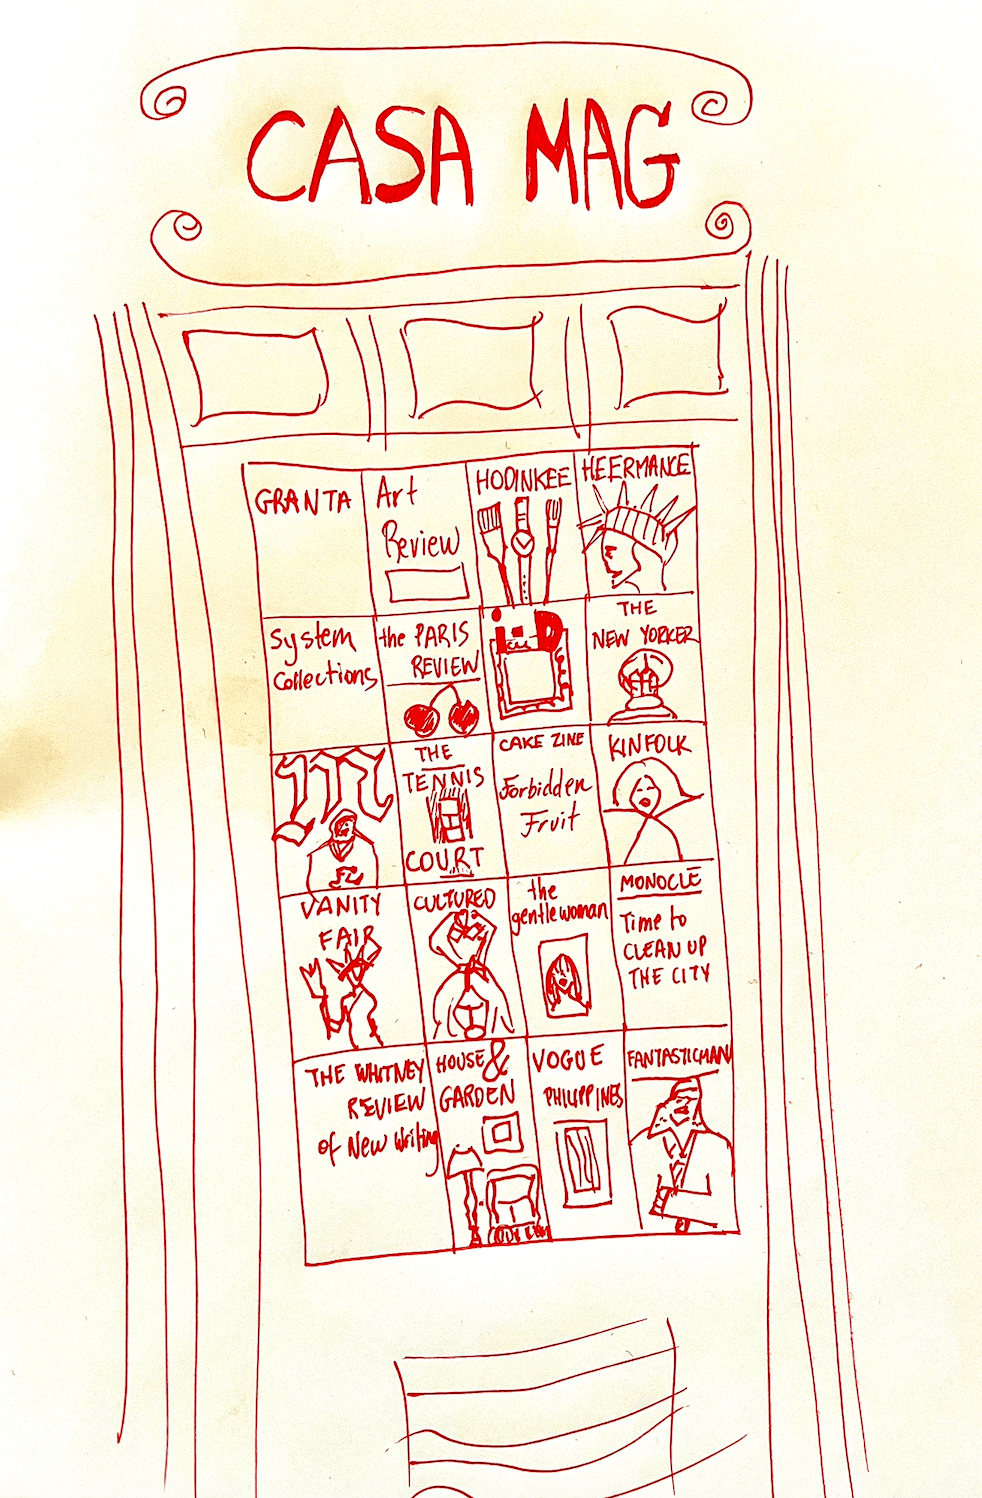 CASA MAG
GRANTA
Art
Review
HODINKEE
HEERMANCE
System
Collections
the PARIS
REVIEW
i-D
THE
NEW YORKER
M
THE
TENNIS
COURT
CAKE ZINE
Forbidden
Fruit
KINFOLK
VANITY
FAIR
CULTURED
the
gentlewoman
MONOCLE
Time to
CLEAN UP
THE CITY
THE WHITNEY
REVIEW
of New Writing
HOUSE &
GARDEN
VOGUE
PHILIPPINES
FANTASTICMAN